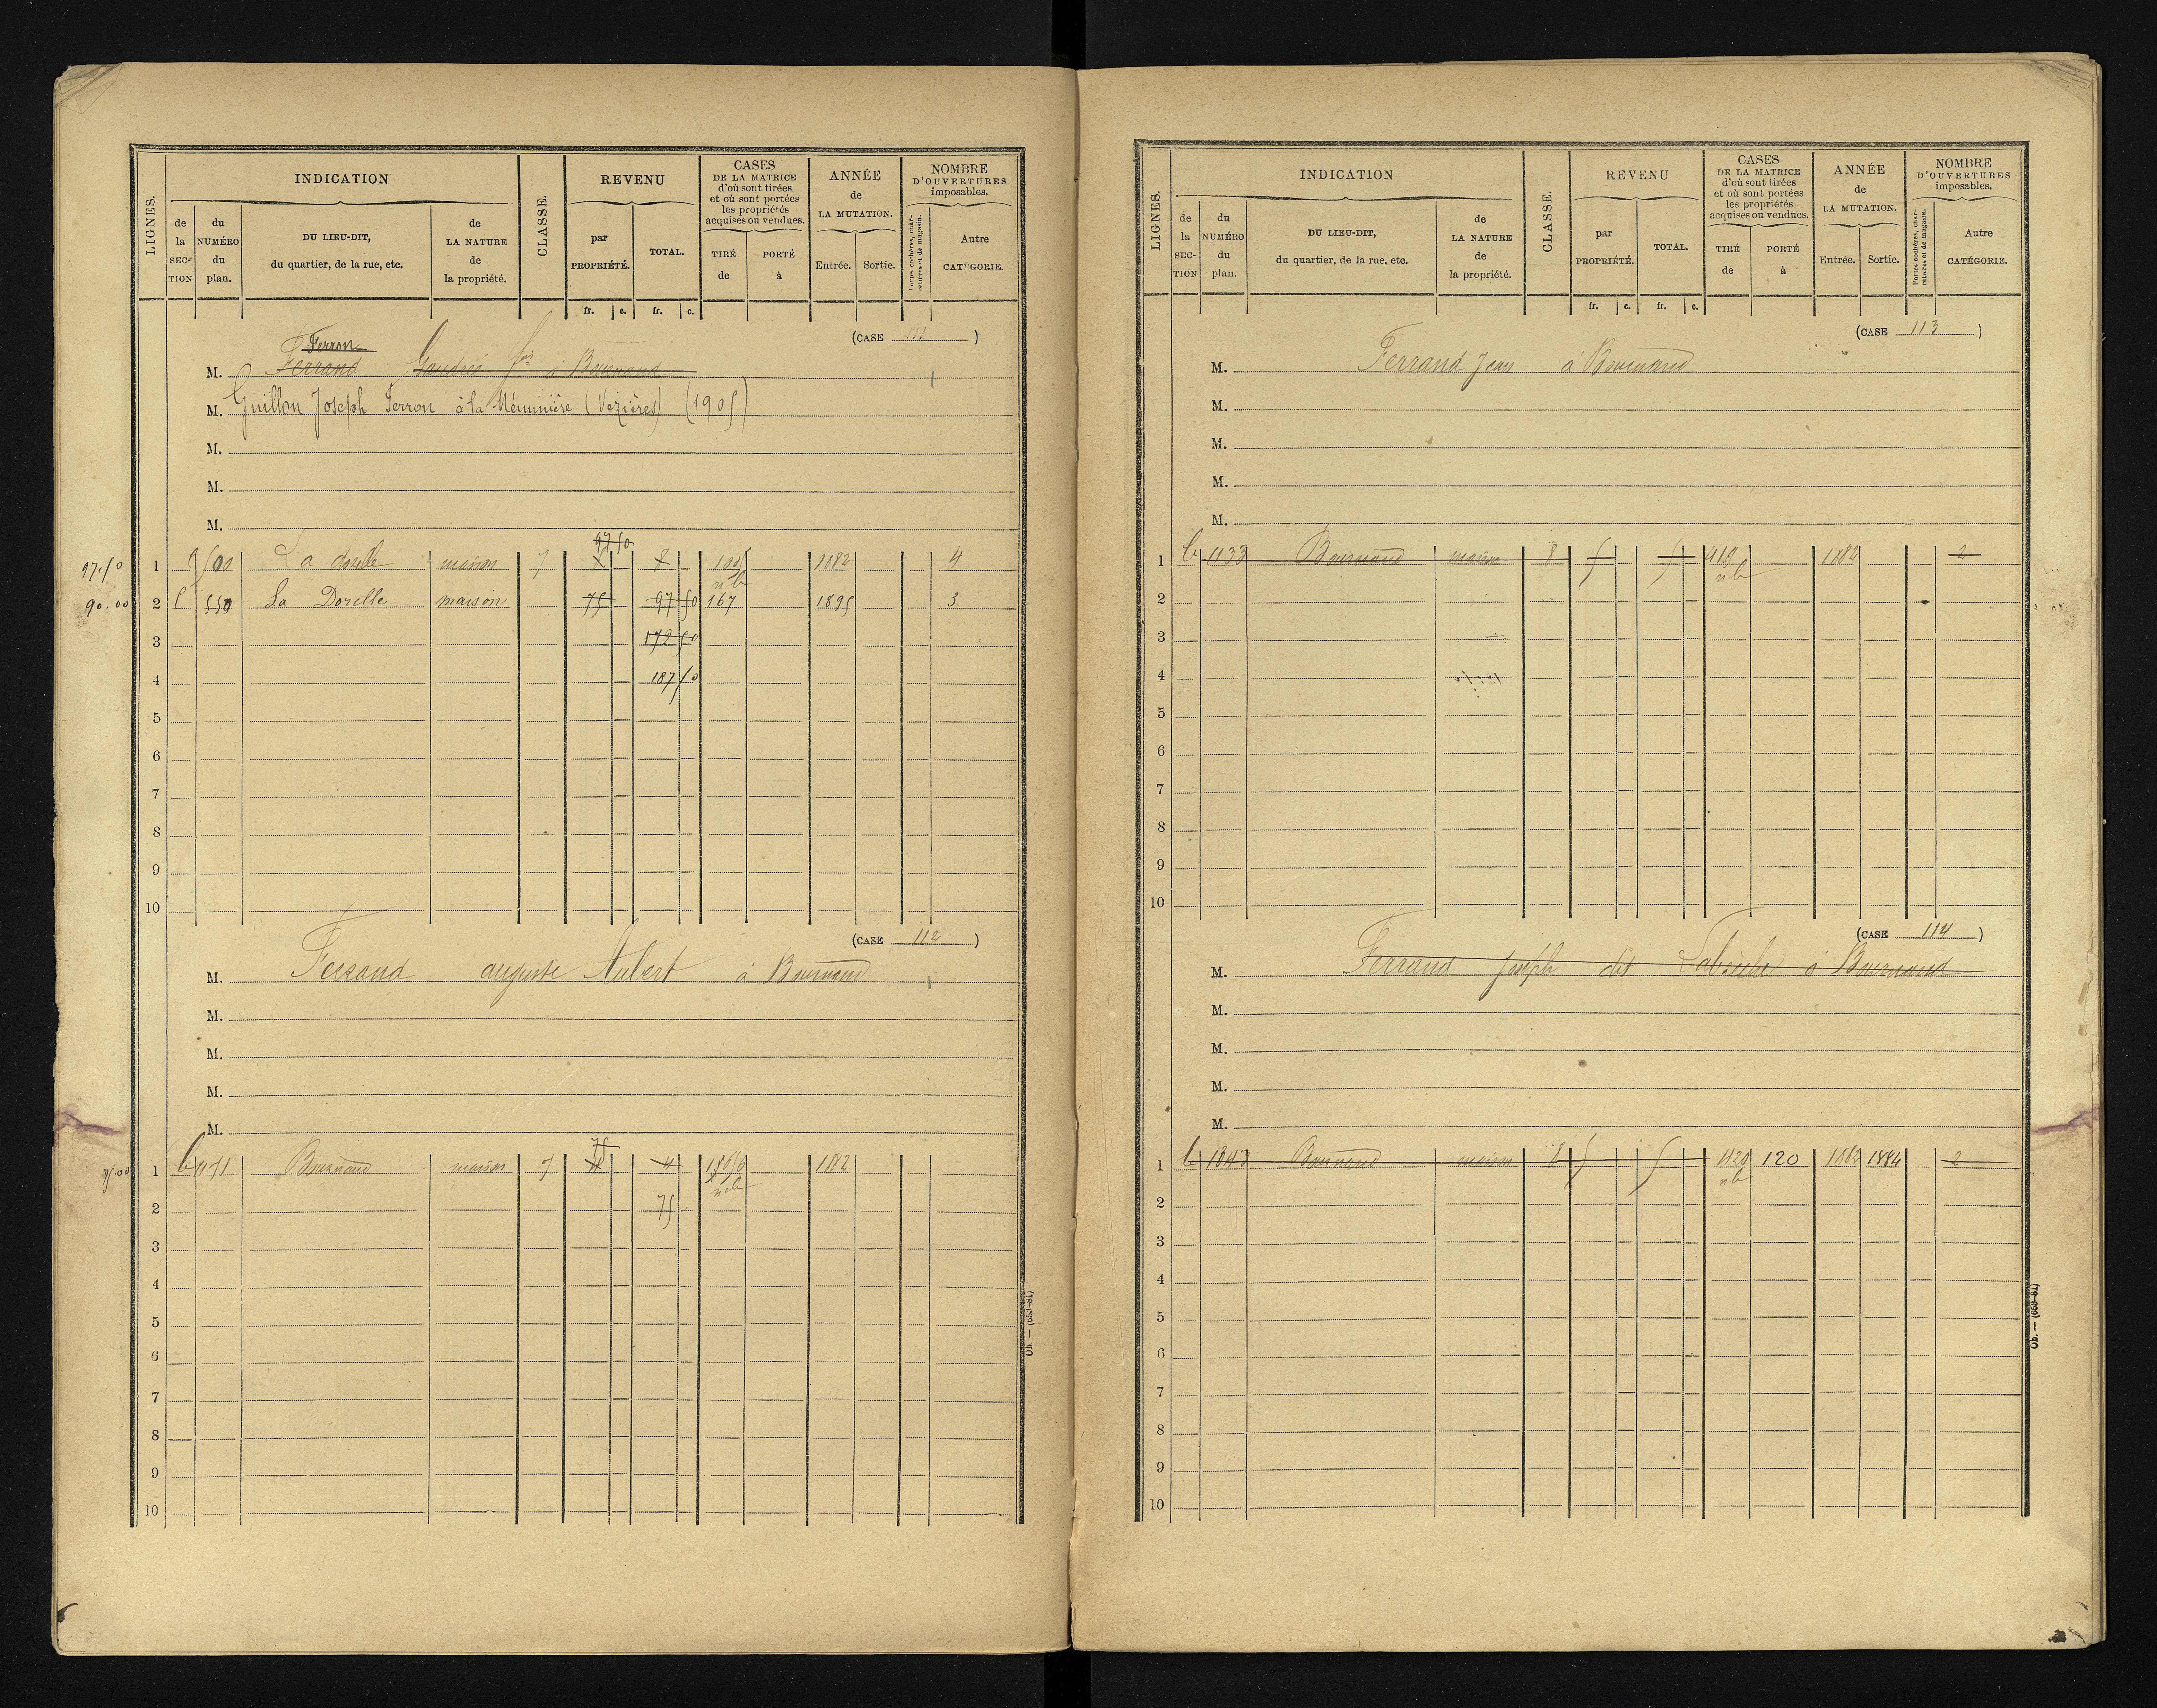 LIGNES. INDICATION CLASSE. REVENU CASES DE LA MATRICE d'où sont tirées et où sont portées les propriétés acquises ou vendues. ANNÉE de LA MUTATION. NOMBRE D'OUVERTURES imposables.
de la SEC-TION du NUMÉRO du plan. DU LIEU-DIT, du quartier, de la rue, etc. de LA NATURE de la propriété. par PROPRIÉTÉ. TOTAL. TIRÉ de PORTÉ à Entrée. Sortie. Portes cochères, charretières et de magasin. Autre CATÉGORIE.
fr. c. fr. c.
(CASE 111)
Ferron
M. Ferrand à Bournand
M. Guillon Joseph Ferron à la (Vezières) (1905)
M.
M.
M.
97.50
97.50 1 500 La dorelle maison 7 8 1882 4
nb
90.00 2 550 La Dorelle maison 75 97 50 167 1895 3
3 172 50
4 187 50
5
6
7
8
9
10
(CASE 112)
M. Ferrand auguste Aubert à Bournand
M.
M.
M.
M.
75
75.00 1 1171 Bournand maison 7 4 4 1882
nb
2 75
3
4
5
6
7
8
9
10
Ob. — (653-81)
LIGNES. INDICATION CLASSE. REVENU CASES DE LA MATRICE d'où sont tirées et où sont portées les propriétés acquises ou vendues. ANNÉE de LA MUTATION. NOMBRE D'OUVERTURES imposables.
de la SEC-TION du NUMÉRO du plan. DU LIEU-DIT, du quartier, de la rue, etc. de LA NATURE de la propriété. par PROPRIÉTÉ. TOTAL. TIRÉ de PORTÉ à Entrée. Sortie. Portes cochères, charretières et de magasin. Autre CATÉGORIE.
fr. c. fr. c.
(CASE 113)
M. Ferrand Jean à Bournand
M.
M.
M.
M.
1 1133 Bournand maison 8 5 5 419 1882 2
nb
2
3
4
5
6
7
8
9
10
(CASE 114)
M. Ferrand Joseph dit à Bournand
M.
M.
M.
M.
1 1343 Bournand maison 8 5 5 420 120 1882 1884 2
nb
2
3
4
5
6
7
8
9
10
Ob. — (653-81)